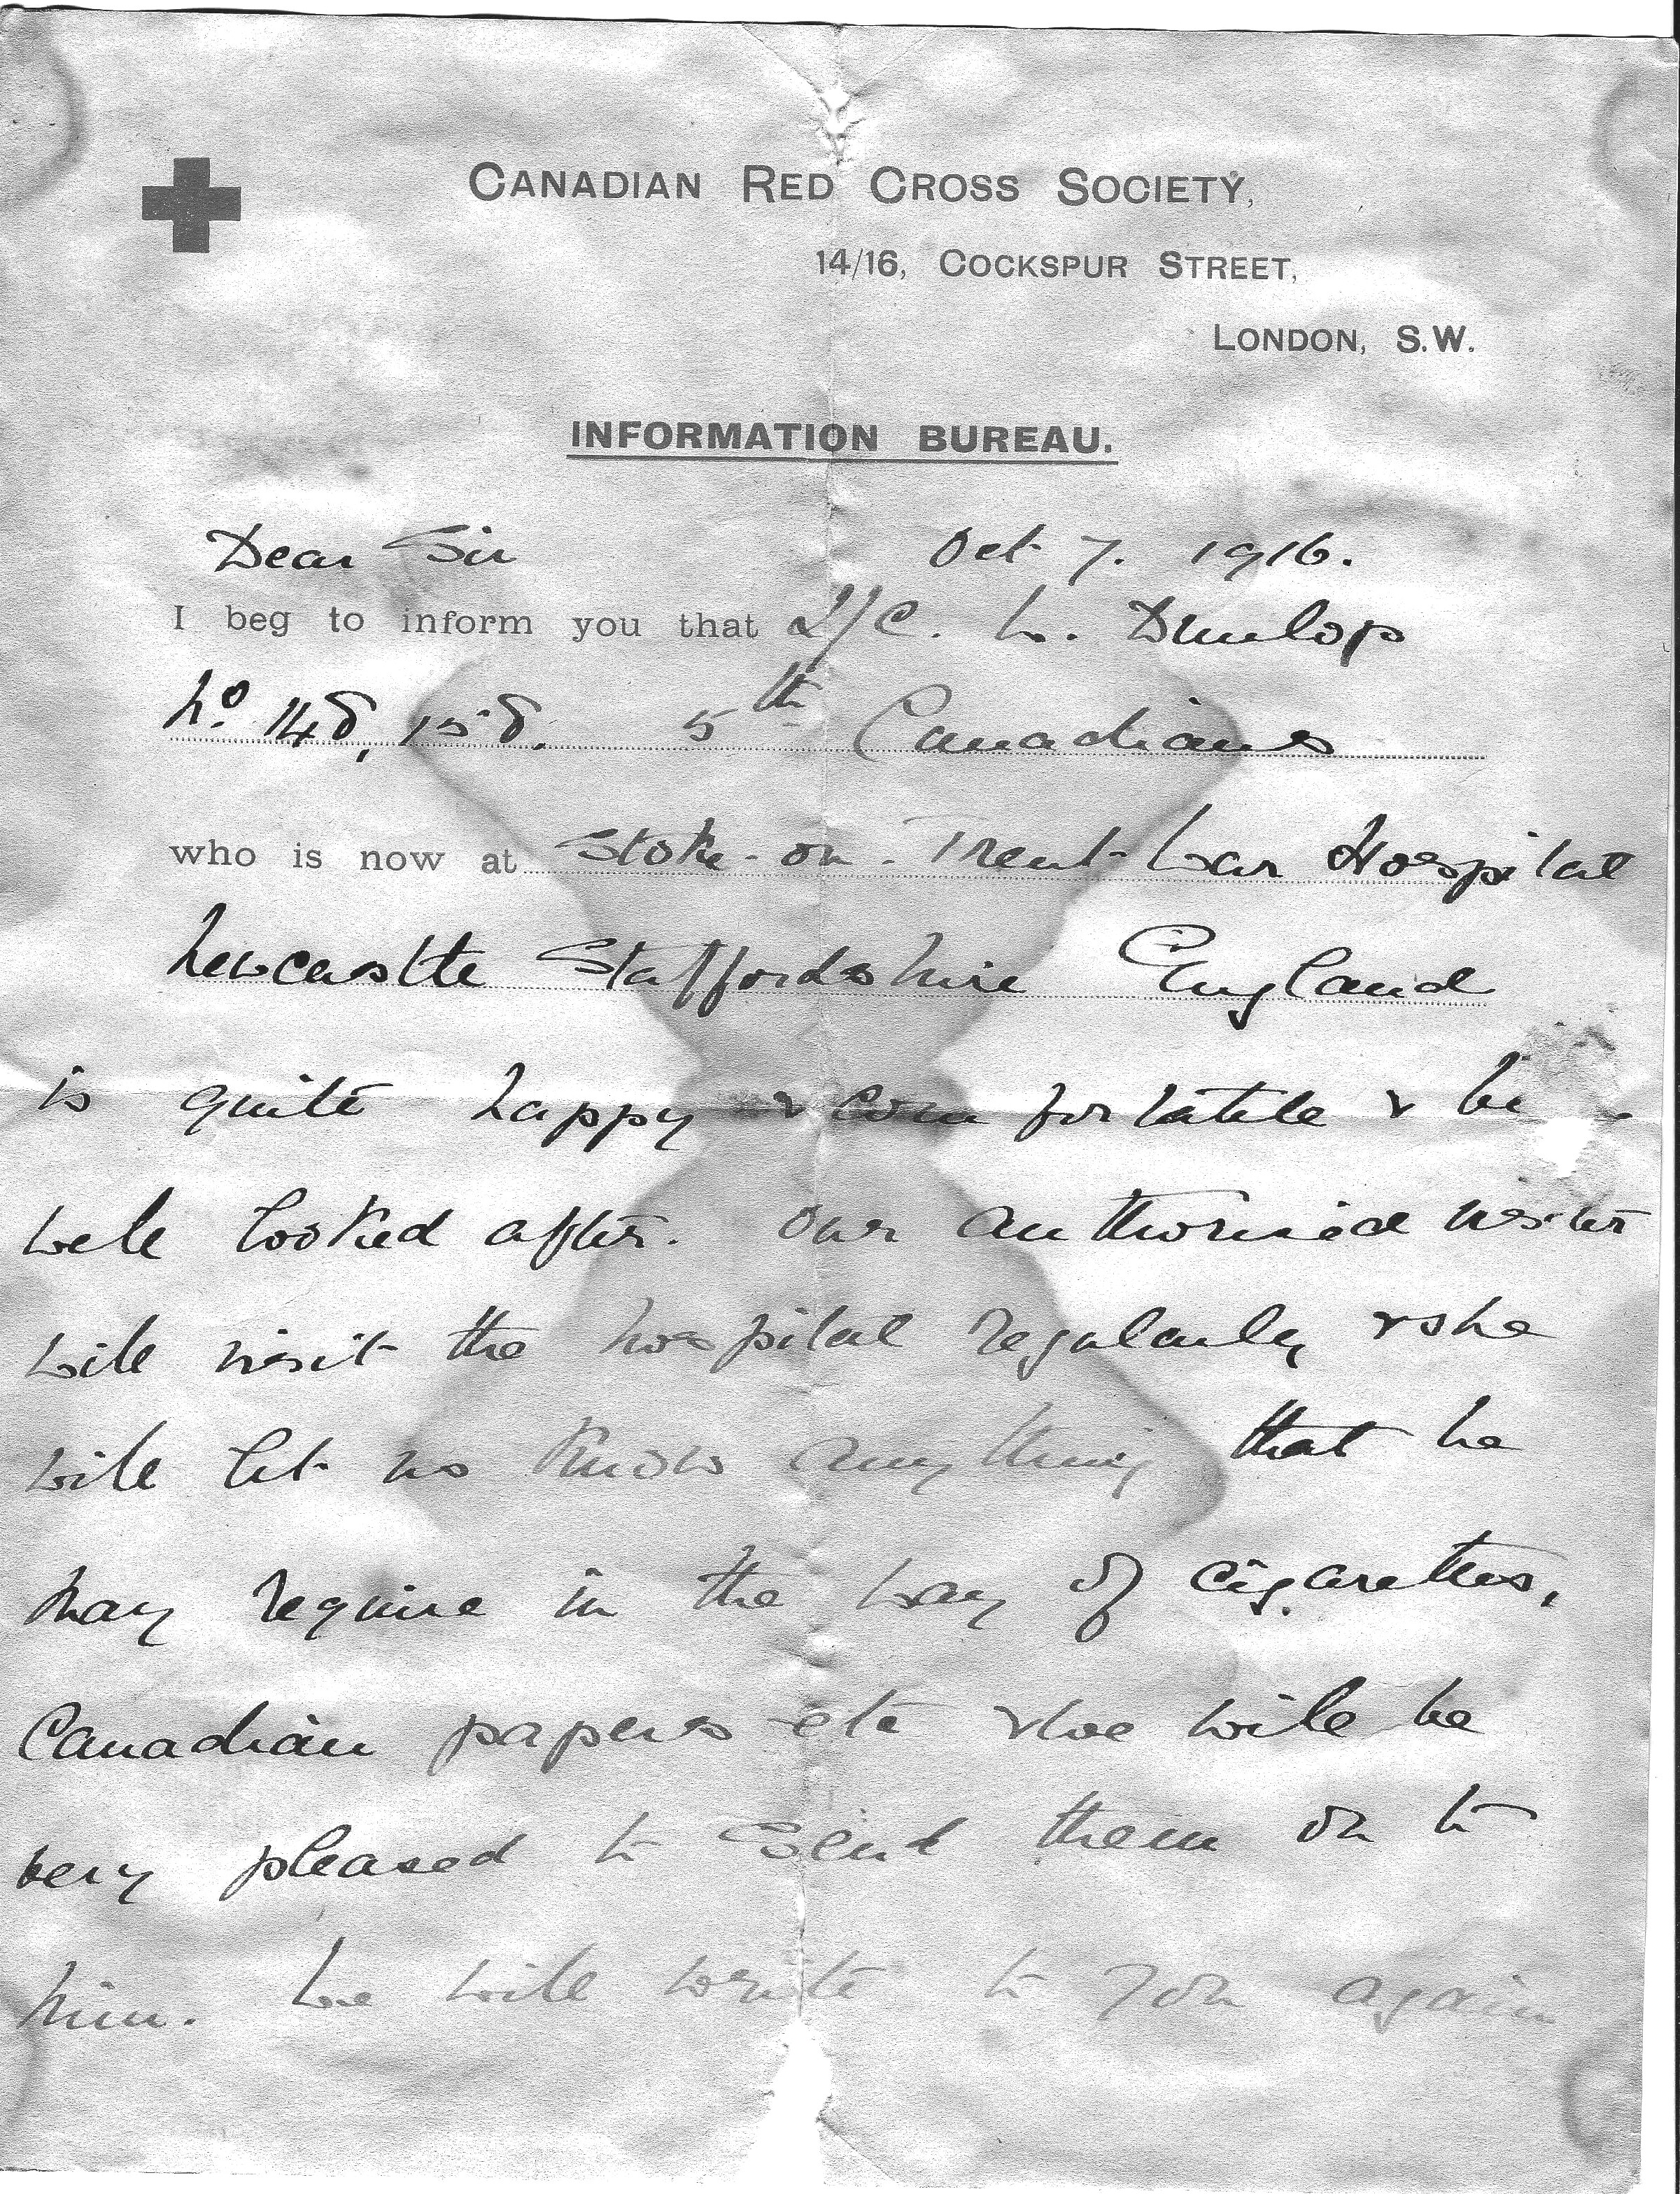 CANADIAN RED CROSS SOCIETY,
14/16, COCKSPUR STREET,
LONDON, S.W.
INFORMATION BUREAU.
Dear Sir Oct 7. 1916.
I beg to inform you that L/C. W. Dunlop
No 148,158. 5th Canadians
who is now at Stoke-on-Trent War Hospital
Newcastle Staffordshire England
is quite happy & comfortable &
well looked after. Our authorised visitor
will visit the hospital regularly & she
will let us know anything that he
may require in the way of cigarettes,
Canadian papers etc & we will be
very pleased to send them on to
him. We will write to you again